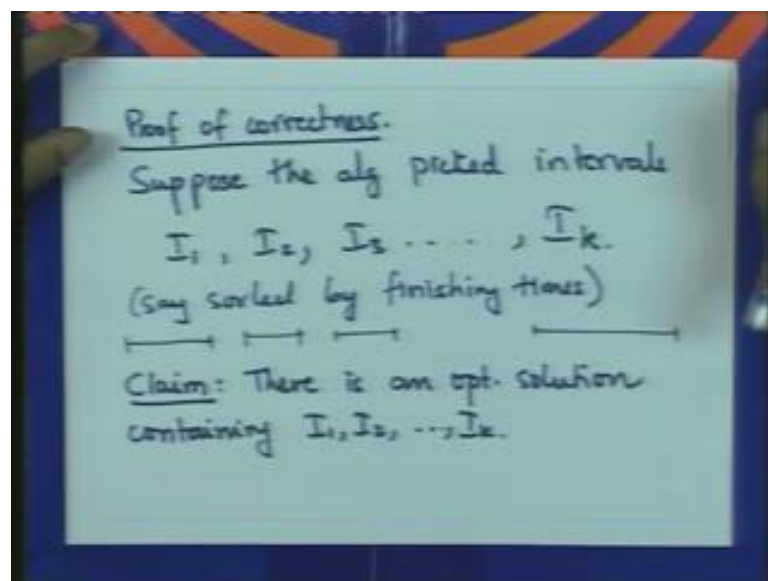 Proof of correctness.
Suppose the alg picked intervals
I₁, I₂, I₃ ...., Iₖ.
(say sorted by finishing times)
Claim: There is an opt. solution
containing I₁, I₂, .., Iₖ.